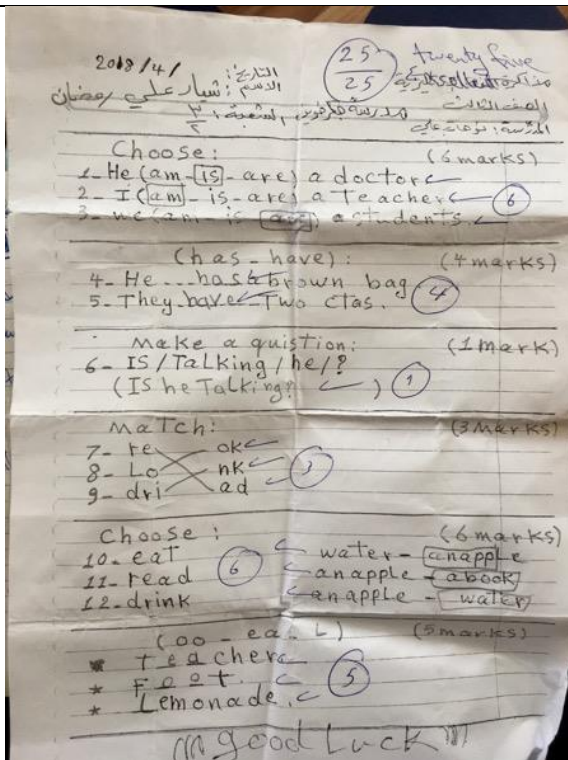 25 twenty five
25
التاريخ: 2018/4/
الاسم: شيار علي رمضان
الصف الثالث
Choose: (6 marks)
1- He (am - is - are) a doctor
2- I (am - is - are) a Teacher 6
3- we (am - is - are) a students.
(has - have): (4 marks)
4- He ... has a brown bag
5- They have Two ctas. 4
Make a quistion: (1 mark)
6- IS / Talking / he / ?
(IS he Talking? ) 1
MaTch: (3 marks)
7- re ok
8- Lo nk 3
9- dri ad
Choose: (6 marks)
10- eat water - anapple
11- read 6 anapple - abook
12- drink anapple - water
(oo - ea - L) (5 marks)
* Teacher
* Foot. 5
* Lemonade.
good Luck